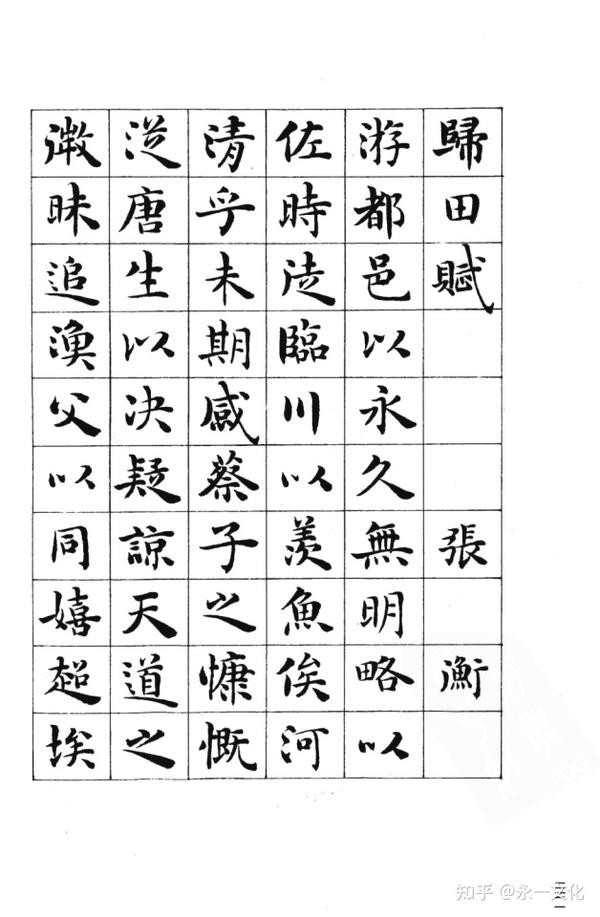 歸田賦 張衡
游都邑以永久無明略以
佐時徒臨川以羨魚俟河
清乎未期感蔡子之慷慨
從唐生以决疑諒天道之
微昧追漁父以同嬉超埃
知乎 @永一文化